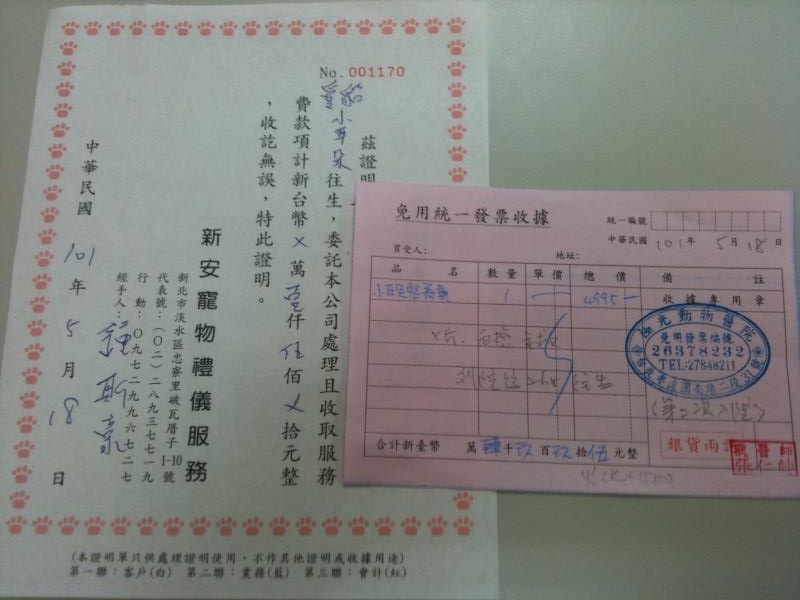 No. 001170
茲證明
小耳朵往生,委託本公司處理且收取服務
費款項計新台幣 ㄨ 萬 壹 仟 伍 佰 ㄨ 拾元整
,收訖無誤,特此證明。
新安寵物禮儀服務
新北市淡水區忠寮里破瓦厝子1-10號
代表號:(〇二)二八九三七七一九
行 動:〇九七二九九六七二七
經手人:
中華民國 101 年 5 月 18 日
(本證明單只供處理證明使用,不作其他證明或收據用途)
第一聯:客戶(白) 第二聯:業務(藍) 第三聯:會計(紅)
免用統一發票收據
統一編號
中華民國 101 年 5 月 18 日
買受人:
地址:
品 名 數 量 單 價 總 價 備 註
小耳朵醫療費 1 — 4995-
收據專用章
極光動物醫院
免用發票編號
26378232
TEL:27848211
(第二次入院)
合計新臺幣 萬 肆 千 玖 百 玖 拾 伍 元整
銀貨兩訖
獸醫師